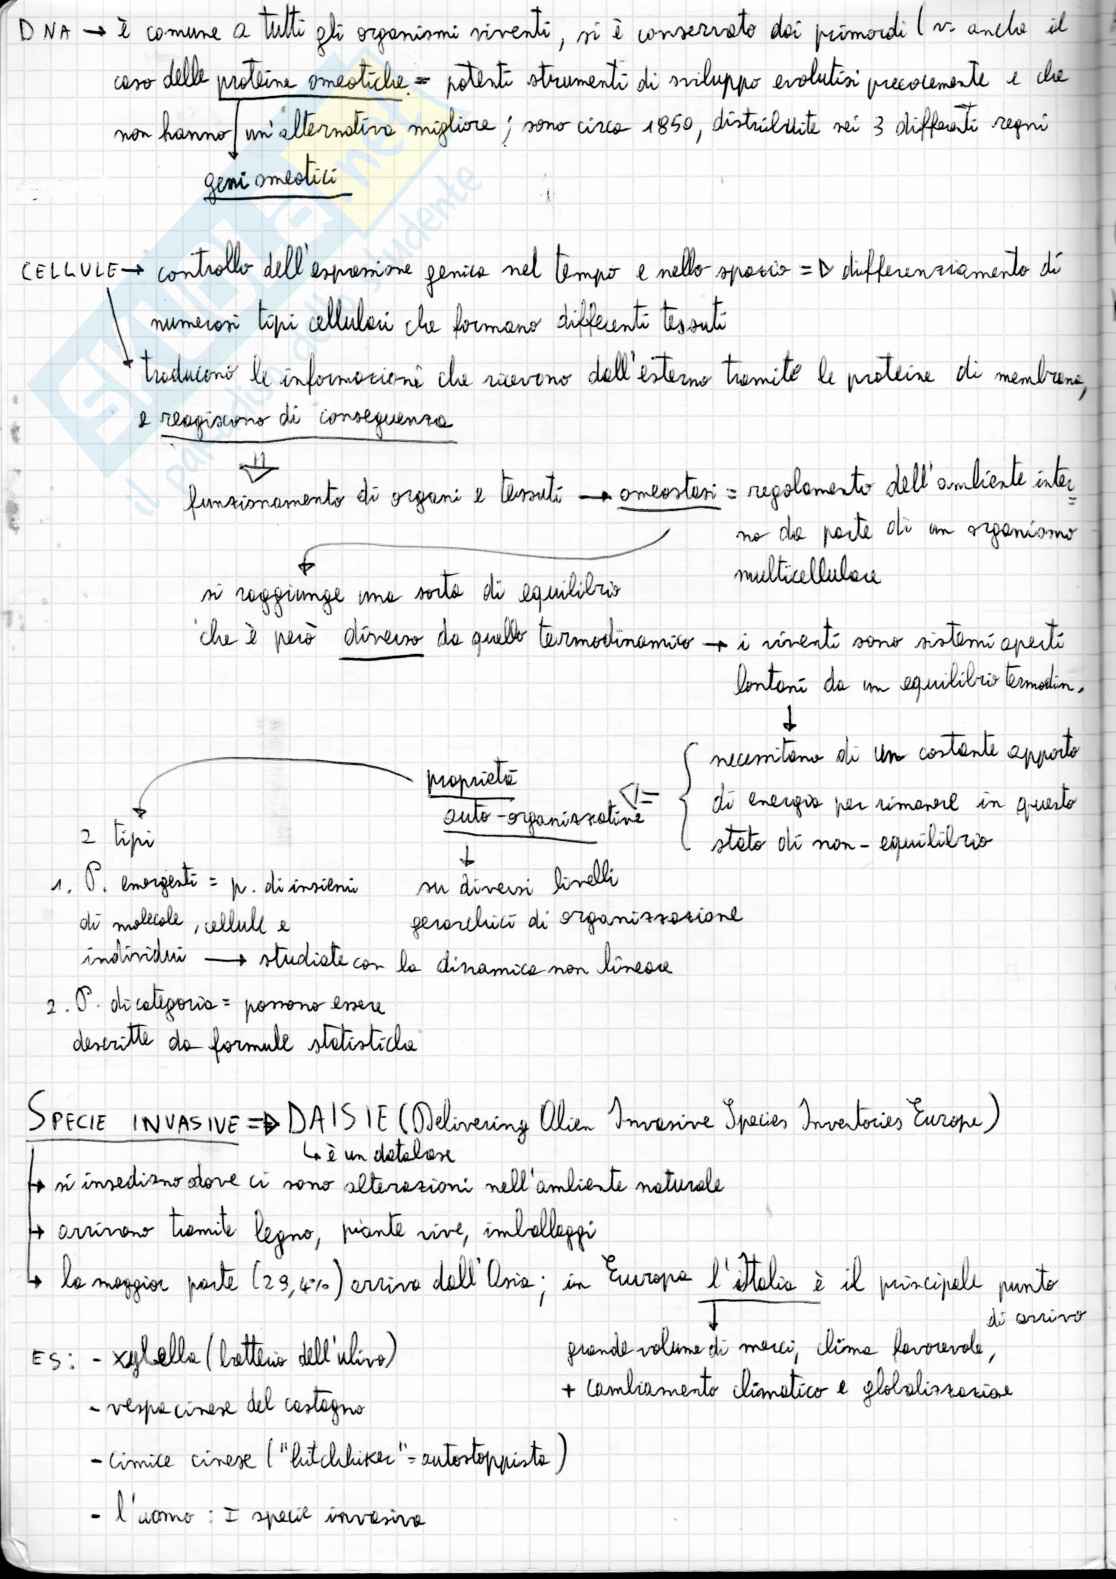 DNA → è comune a tutti gli organismi viventi, si è conservato dai primordi (v. anche il
caso delle proteine omeotiche = potenti strumenti di sviluppo evolutisi precocemente e che
non hanno un'alternativa migliore; sono circa 1850, distribuite nei 3 differenti regni
geni omeotici
CELLULE → controllo dell'espressione genica nel tempo e nello spazio => differenziamento di
numerosi tipi cellulari che formano differenti tessuti
traducono le informazioni che ricevono dall'esterno tramite le proteine di membrana,
e reagiscono di conseguenza
funzionamento di organi e tessuti → omeostasi = regolamento dell'ambiente inter=
no da parte di un organismo
multicellulare
si raggiunge una sorta di equilibrio
che è però diverso da quello termodinamico → i viventi sono sistemi aperti
lontani da un equilibrio termodin.
necessitano di un costante apporto
di energia per rimanere in questo
stato di non-equilibrio
proprietà
auto-organizzative
su diversi livelli
gerarchici di organizzazione
2 tipi
1. P. emergenti = p. di insiemi
di molecole, cellule e
individui → studiate con la dinamica non lineare
2. P. di categoria = possono essere
descritte da formule statistiche
SPECIE INVASIVE => DAISIE (Delivering Alien Invasive Species Inventories Europe)
↳ è un database
→ si insediano dove ci sono alterazioni nell'ambiente naturale
→ arrivano tramite legno, piante vive, imballaggi
→ la maggior parte (29,4%) arriva dall'Asia; in Europa l'Italia è il principale punto
di arrivo
grande volume di merci, clima favorevole,
+ cambiamento climatico e globalizzazione
ES: - xylella (batterio dell'ulivo)
- vespa cinese del castagno
- cimice cinese ("hitchhiker" = autostoppista)
- l'uomo: I specie invasiva
SKUOLA.net
il paradiso dello studente